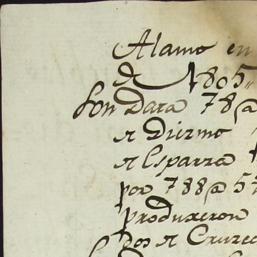 Alamo en
de 1805"
son Dara 78@
de Diezmo
de Esparza
por 788@ 5
produxeron
dos de Cruzed